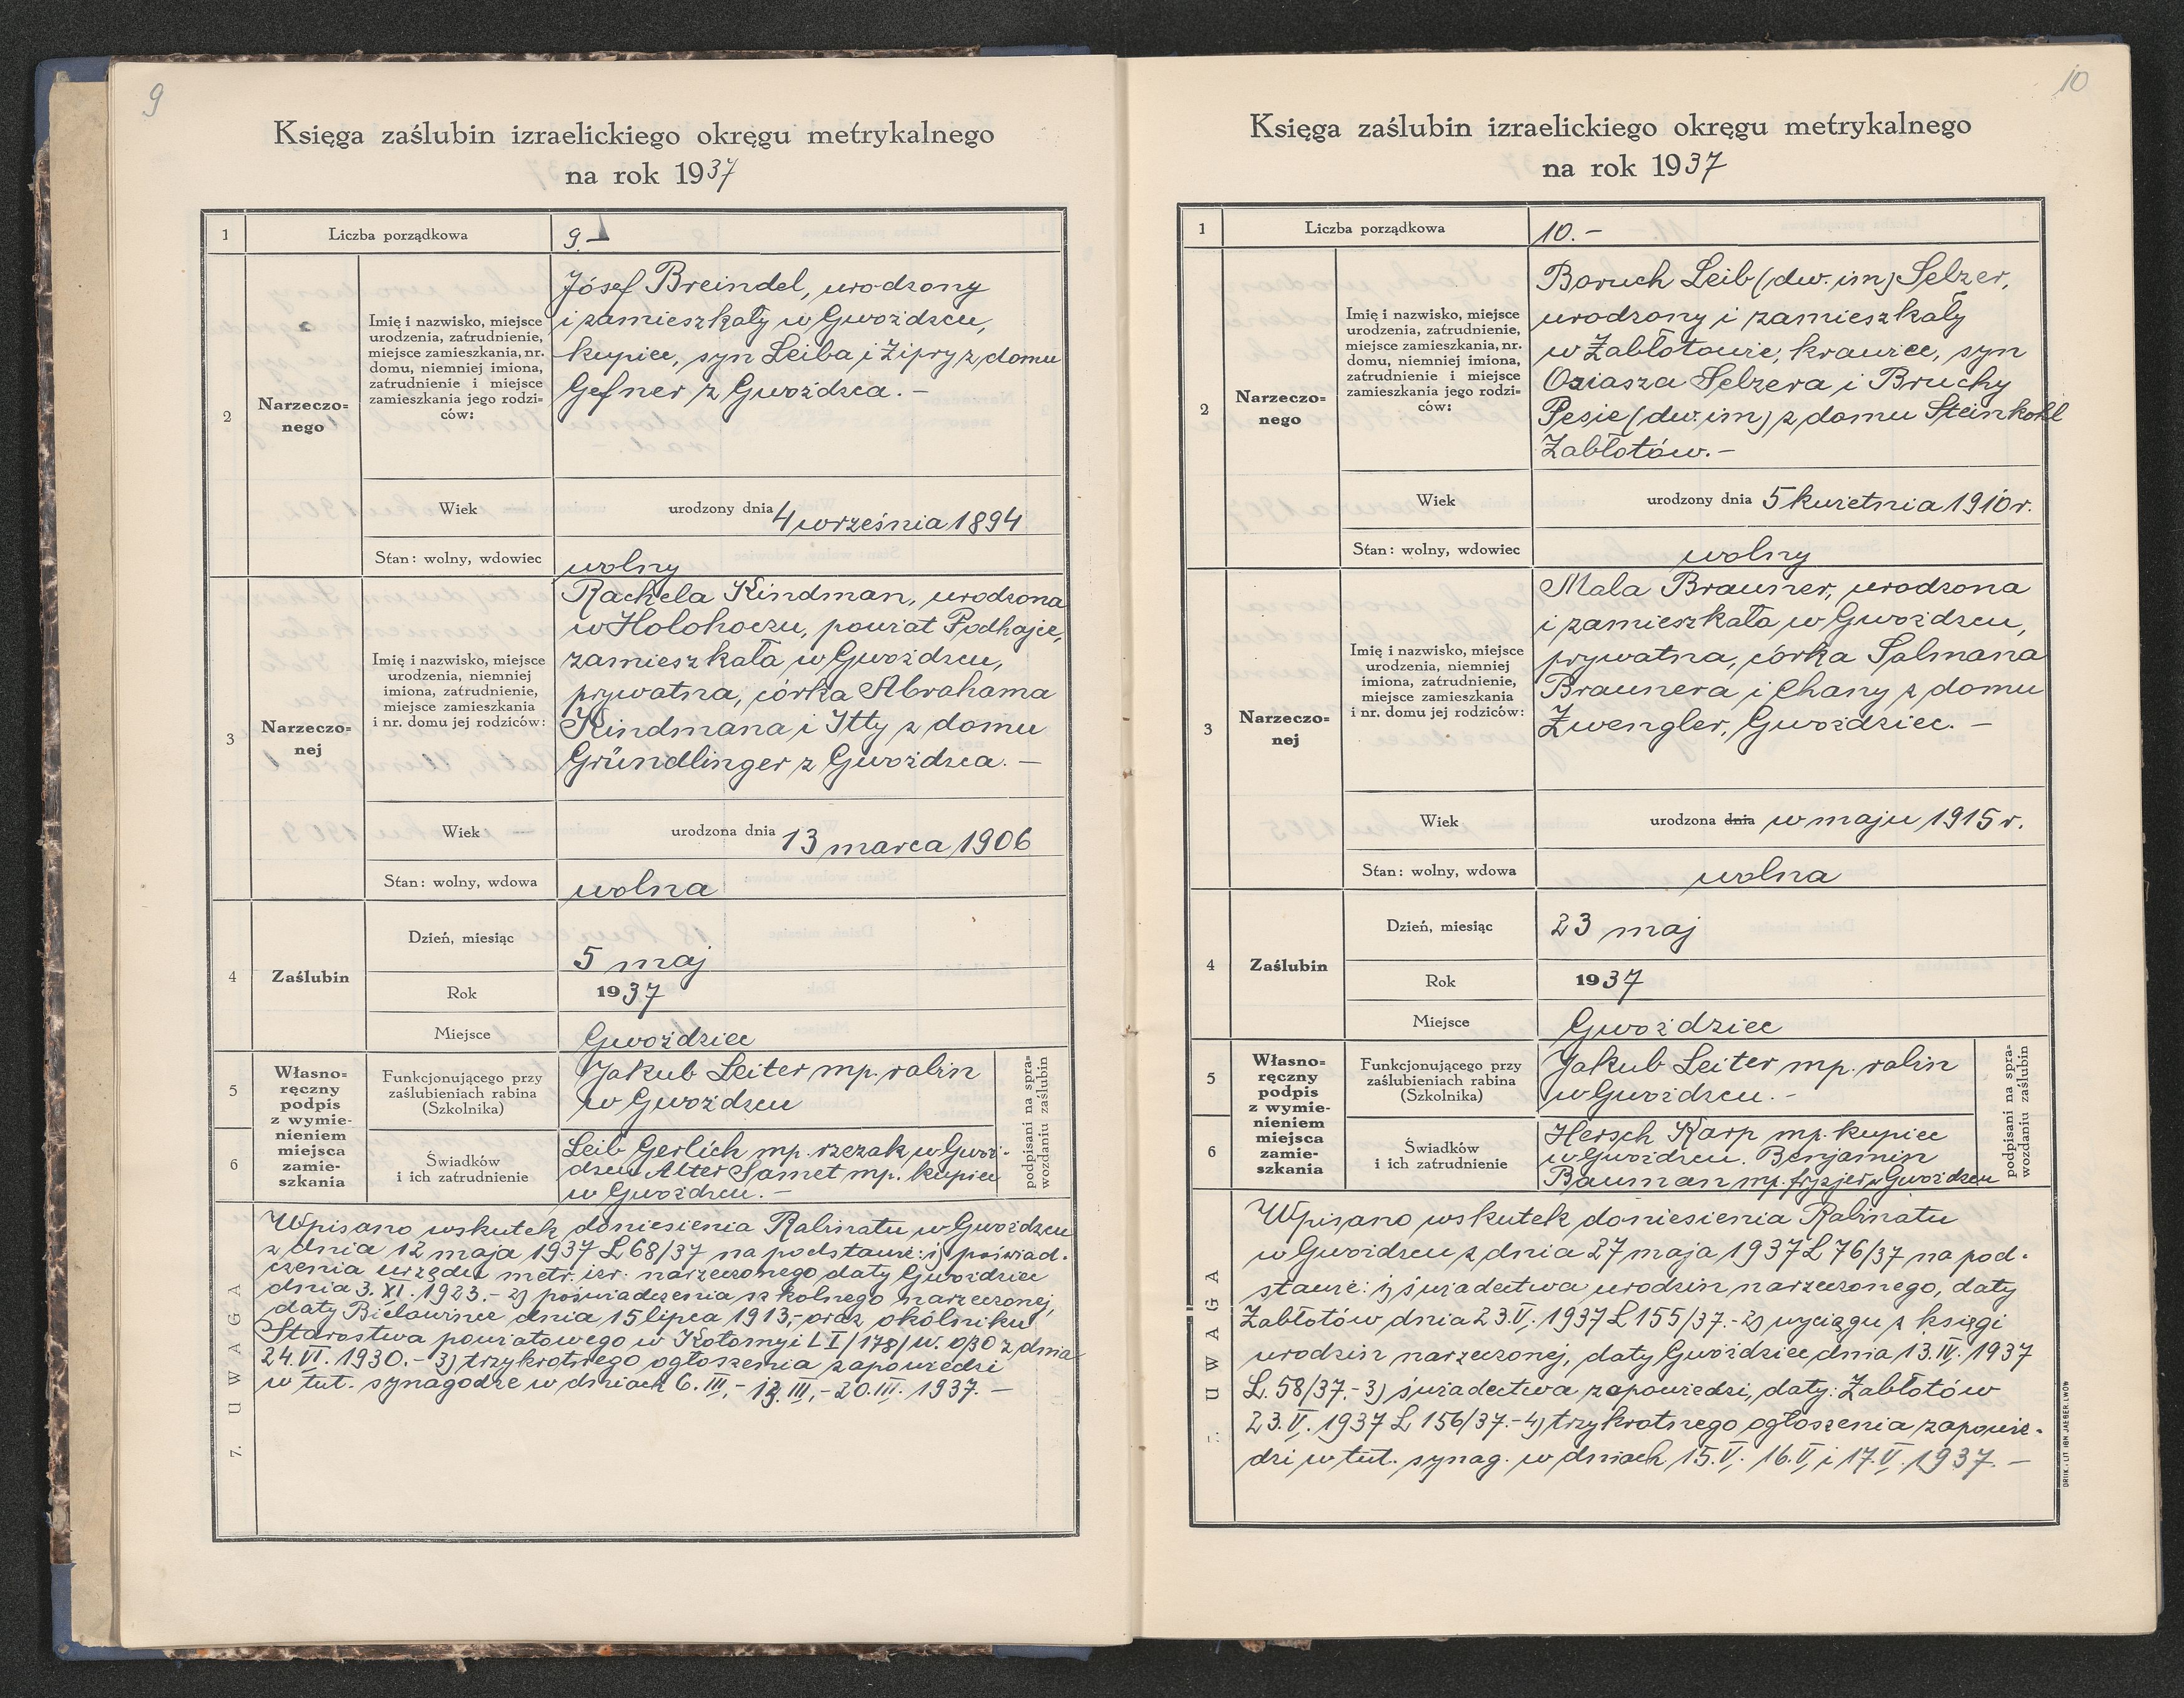 9
Księga zaślubin izraelickiego okręgu metrykalnego
na rok 1937
1
Liczba porządkowa
9.–
2
Narzeczo=
nego
Imię i nazwisko, miejsce
urodzenia, zatrudnienie,
miejsce zamieszkania, nr.
domu, niemniej imiona,
zatrudnienie i miejsce
zamieszkania jego rodzi-
ców:
Józef Breindel, urodzony
i zamieszkały w Gwoźdzcu,
kupiec, syn Leiba i Zipry z domu
Gefner z Gwoźdzca. –
Wiek
urodzony dnia 4 września 1894
Stan: wolny, wdowiec
wolny
3
Narzeczo=
nej
Imię i nazwisko, miejsce
urodzenia, niemniej
imiona, zatrudnienie,
miejsce zamieszkania
i nr. domu jej rodziców:
Rachela Kindman, urodzona
w Hołohoczu, powiat Podhajce,
zamieszkała w Gwoźdzcu,
prywatna, córka Abrahama
Kindmana i Itty z domu
Gründlinger z Gwoźdzca. –
Wiek
urodzona dnia 13 marca 1906
Stan: wolny, wdowa
wolna
4
Zaślubin
Dzień, miesiąc
5 maj
Rok
1937
Miejsce
Gwoździec
5
6
Własno=
ręczny
podpis
z wymie-
nieniem
miejsca
zamie-
szkania
Funkcjonującego przy
zaślubieniach rabina
(Szkolnika)
Jakub Leiter mp. rabin
w Gwoźdzcu
Świadków
i ich zatrudnienie
Leib Gerlich mp. rzezak w Gwoź-
dzcu Alter Samet mp. kupiec
w Gwoźdzcu. –
podpisani na spra-
wozdaniu zaślubin
7. UWAGA
Wpisano wskutek doniesienia Rabinatu w Gwoźdzcu
z dnia 12 maja 1937 L 68/37 na podstawie: 1) poświad-
czenia urzędu metr. izr. narzeczonego daty Gwoździec
dnia 3. XI. 1923. – 2) poświadczenia szkolnego narzeczonej,
daty Bielawince dnia 15 lipca 1913, – oraz okólniku
Starostwa powiatowego w Kołomyi L I/178/W. 0/30 z dnia
24. VI. 1930. – 3) trzykrotnego ogłoszenia zapowiedzi
w tut. synagodze w dniach 6. III, – 13. III, – 20. III. 1937. –
10
Księga zaślubin izraelickiego okręgu metrykalnego
na rok 1937
1
Liczba porządkowa
10. –
2
Narzeczo=
nego
Imię i nazwisko, miejsce
urodzenia, zatrudnienie,
miejsce zamieszkania, nr.
domu, niemniej imiona,
zatrudnienie i miejsce
zamieszkania jego rodzi-
ców:
Boruch Leib (dw. im) Selzer,
urodzony i zamieszkały
w Zabłotowie, krawiec, syn
Oziasza Selzera i Bruchy
Pesie (dw. im) z domu Steinkohl
Zabłotów. –
Wiek
urodzony dnia 5 kwietnia 1910 r.
Stan: wolny, wdowiec
wolny
3
Narzeczo=
nej
Imię i nazwisko, miejsce
urodzenia, niemniej
imiona, zatrudnienie,
miejsce zamieszkania
i nr. domu jej rodziców:
Mala Brauner, urodzona
i zamieszkała w Gwoźdzcu,
prywatna, córka Salmana
Braunera i Chany z domu
Zwengler, Gwoździec. –
Wiek
urodzona dnia w maju 1915 r.
Stan: wolny, wdowa
wolna
4
Zaślubin
Dzień, miesiąc
23 maj
Rok
1937
Miejsce
Gwoździec
5
6
Własno=
ręczny
podpis
z wymie-
nieniem
miejsca
zamie-
szkania
Funkcjonującego przy
zaślubieniach rabina
(Szkolnika)
Jakub Leiter mp. rabin
w Gwoźdzcu. –
Świadków
i ich zatrudnienie
Hersch Karp mp. kupiec
w Gwoźdzcu. Benjamin
Bauman mp. fryzjer w Gwoźdzcu
podpisani na spra-
wozdaniu zaślubin
UWAGA
Wpisano wskutek doniesienia Rabinatu
w Gwoźdzcu z dnia 27 maja 1937 L 76/37 na pod-
stawie: 1) świadectwa urodzin narzeczonego, daty
Zabłotów dnia 23. V. 1937 L 155/37. – 2) wyciągu z księgi
urodzin narzeczonej, daty Gwoździec dnia 13. IV. 1937
L. 58/37. – 3) świadectwa zapowiedzi, daty: Zabłotów
23. V. 1937 L 156/37. – 4) trzykrotnego ogłoszenia zapowie-
dzi w tut. synag. w dniach 15. V. 16. V, i 17. V. 1937. –
DRUK. I LIT. IGN. JAEGER, LWÓW